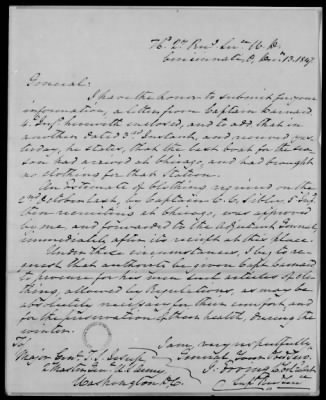 Hd. Qrs. Rec'g Serv. W. D.
Cincinnati, O, Nov. 13. 1847.
General:
I have the honor to submit for your
information, a letter from Captain
4. Inf. herewith enclosed, and to add that in
another dated 3rd Instant, and received yes-
terday, he states, that the last boat for the sea-
son had arrived at Chicago, and had brought
no clothing for that Station.
An estimate of Clothing required on the
2nd October last, by Captain C. C. Sibley, 5" Inf.
then recruiting at Chicago, was approved
by me, and forwarded to the Adjutant General,
immediately after its receipt at this place.
Under these circumstances, I beg to re-
quest that authority be given Capt.
to procure for his recruits articles of clo-
thing, allowed by Regulations, as may be
absolutely necessary for their comfort, and
for the preservation of their health, during the
winter.
I am, very respectfully,
To General Your Obt. Svt.
Major Genl. T. S. Jesup
Qr Master Genl. U. S. Army
Washington D. C.